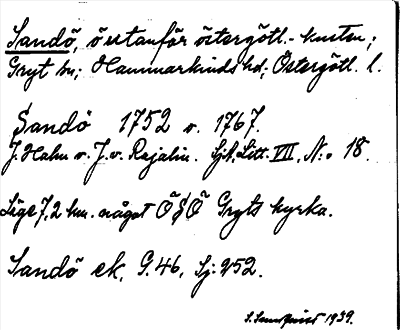 Sandö, östanför östergötl.-kusten;
Gryt sn; Hammarkinds hd; Östergötl. l.
Sandö 1752 o. 1767.
J. Hahn o. J. v. Rajalin. Sjk, Litt. VII, N:o 18.
Läge 7,2 km. något ÖSÖ Gryts kyrka.
Sandö ek. G. 46, Sj: 952.
1939.